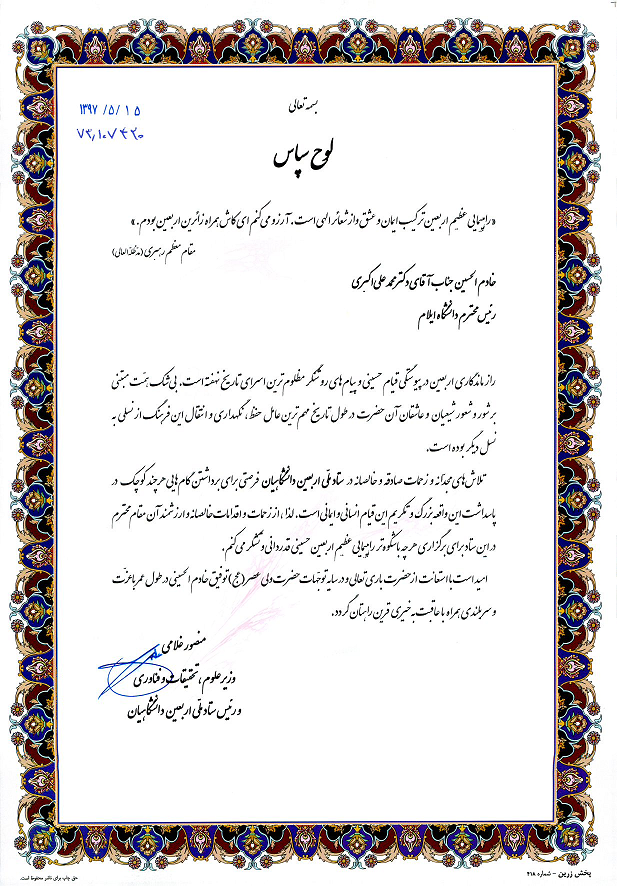 بسمه تعالی
۱۳۹۷/۵/۱۵
۷۳/۱۰۷۴۳۰
لوح سپاس
«راهپیمایی عظیم اربعین ترکیب ایمان و عشق و از شعائر الهی است. آرزو می‌کنم ای کاش همراه زائرین اربعین بودم.»
مقام معظم رهبری (مدظله العالی)
خادم الحسین جناب آقای دکتر محمد علی اکبری
رئیس محترم دانشگاه ایلام
راز ماندگاری اربعین در پیوستگی قیام حسینی و پیام های روشنگر مظلوم ترین اسرای تاریخ نهفته است. بی شک همّت مبتنی
بر شور و شعور شیعیان و عاشقان آن حضرت در طول تاریخ مهم ترین عامل حفظ، نگهداری و انتقال این فرهنگ از نسلی به
نسل دیگر بوده است.
تلاش های مجدانه و زحمات صادقه و خالصانه در ستاد ملّی اربعین دانشگاهیان فرصتی برای برداشتن گام هایی هرچند کوچک در
پاسداشت این واقعه بزرگ و تکریم این قیام انسانی و ایمانی است. لذا، از زحمات و اقدامات خالصانه و ارزشمند آن مقام محترم
در این ستاد برای برگزاری هرچه باشکوه تر راهپیمایی عظیم اربعین حسینی قدردانی و تشکر می کنم.
امید است با استعانت از حضرت باری تعالی و در سایه توجهات حضرت ولی عصر (عج) توفیق خادم الحسینی در طول عمر با عزّت
و سربلندی همراه با عاقبت به خیری قرین راهتان گردد.
منصور غلامی
وزیر علوم، تحقیقات و فناوری
و رئیس ستاد ملی اربعین دانشگاهیان
پخش زرین - شماره ۴۱۸
حق چاپ برای ناشر محفوظ است.